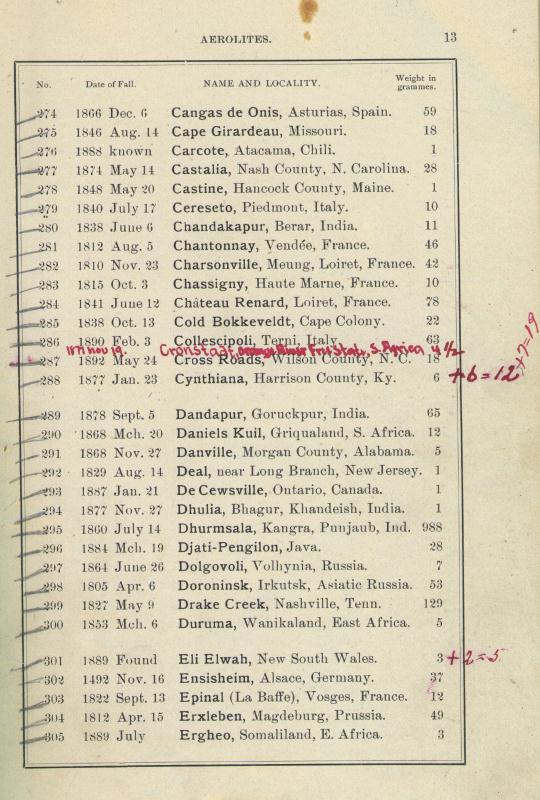 AEROLITES. 13
No. Date of Fall. NAME AND LOCALITY. Weight in grammes.
274 1866 Dec. 6 Cangas de Onis, Asturias, Spain. 59
275 1846 Aug. 14 Cape Girardeau, Missouri. 18
276 1888 known Carcote, Atacama, Chili. 1
277 1874 May 14 Castalia, Nash County, N. Carolina. 28
278 1848 May 20 Castine, Hancock County, Maine. 1
279 1840 July 17 Cereseto, Piedmont, Italy. 10
280 1838 June 6 Chandakapur, Berar, India. 11
281 1812 Aug. 5 Chantonnay, Vendée, France. 46
282 1810 Nov. 23 Charsonville, Meung, Loiret, France. 42
283 1815 Oct. 3 Chassigny, Haute Marne, France. 10
284 1841 June 12 Château Renard, Loiret, France. 78
285 1838 Oct. 13 Cold Bokkeveldt, Cape Colony. 22
286 1890 Feb. 3 Collescipoli, Terni, Italy. 63
1877 nov 19. Cronstadt, Orange River Free State, S. Africa 4 1/2
287 1892 May 24 Cross Roads, Wilson County, N. C. 18
288 1877 Jan. 23 Cynthiana, Harrison County, Ky. 6 +6=12 +7=19
289 1878 Sept. 5 Dandapur, Goruckpur, India. 65
290 1868 Mch. 20 Daniels Kuil, Griqualand, S. Africa. 12
291 1868 Nov. 27 Danville, Morgan County, Alabama. 5
292 1829 Aug. 14 Deal, near Long Branch, New Jersey. 1
293 1887 Jan. 21 De Cewsville, Ontario, Canada. 1
294 1877 Nov. 27 Dhulia, Bhagur, Khandeish, India. 1
295 1860 July 14 Dhurmsala, Kangra, Punjaub, Ind. 988
296 1884 Mch. 19 Djati-Pengilon, Java. 28
297 1864 June 26 Dolgovoli, Volhynia, Russia. 7
298 1805 Apr. 6 Doroninsk, Irkutsk, Asiatic Russia. 53
299 1827 May 9 Drake Creek, Nashville, Tenn. 129
300 1853 Mch. 6 Duruma, Wanikaland, East Africa. 5
301 1889 Found Eli Elwah, New South Wales. 3 +2=5
302 1492 Nov. 16 Ensisheim, Alsace, Germany. 37
303 1822 Sept. 13 Epinal (La Baffe), Vosges, France. 12
304 1812 Apr. 15 Erxleben, Magdeburg, Prussia. 49
305 1889 July Ergheo, Somaliland, E. Africa. 3